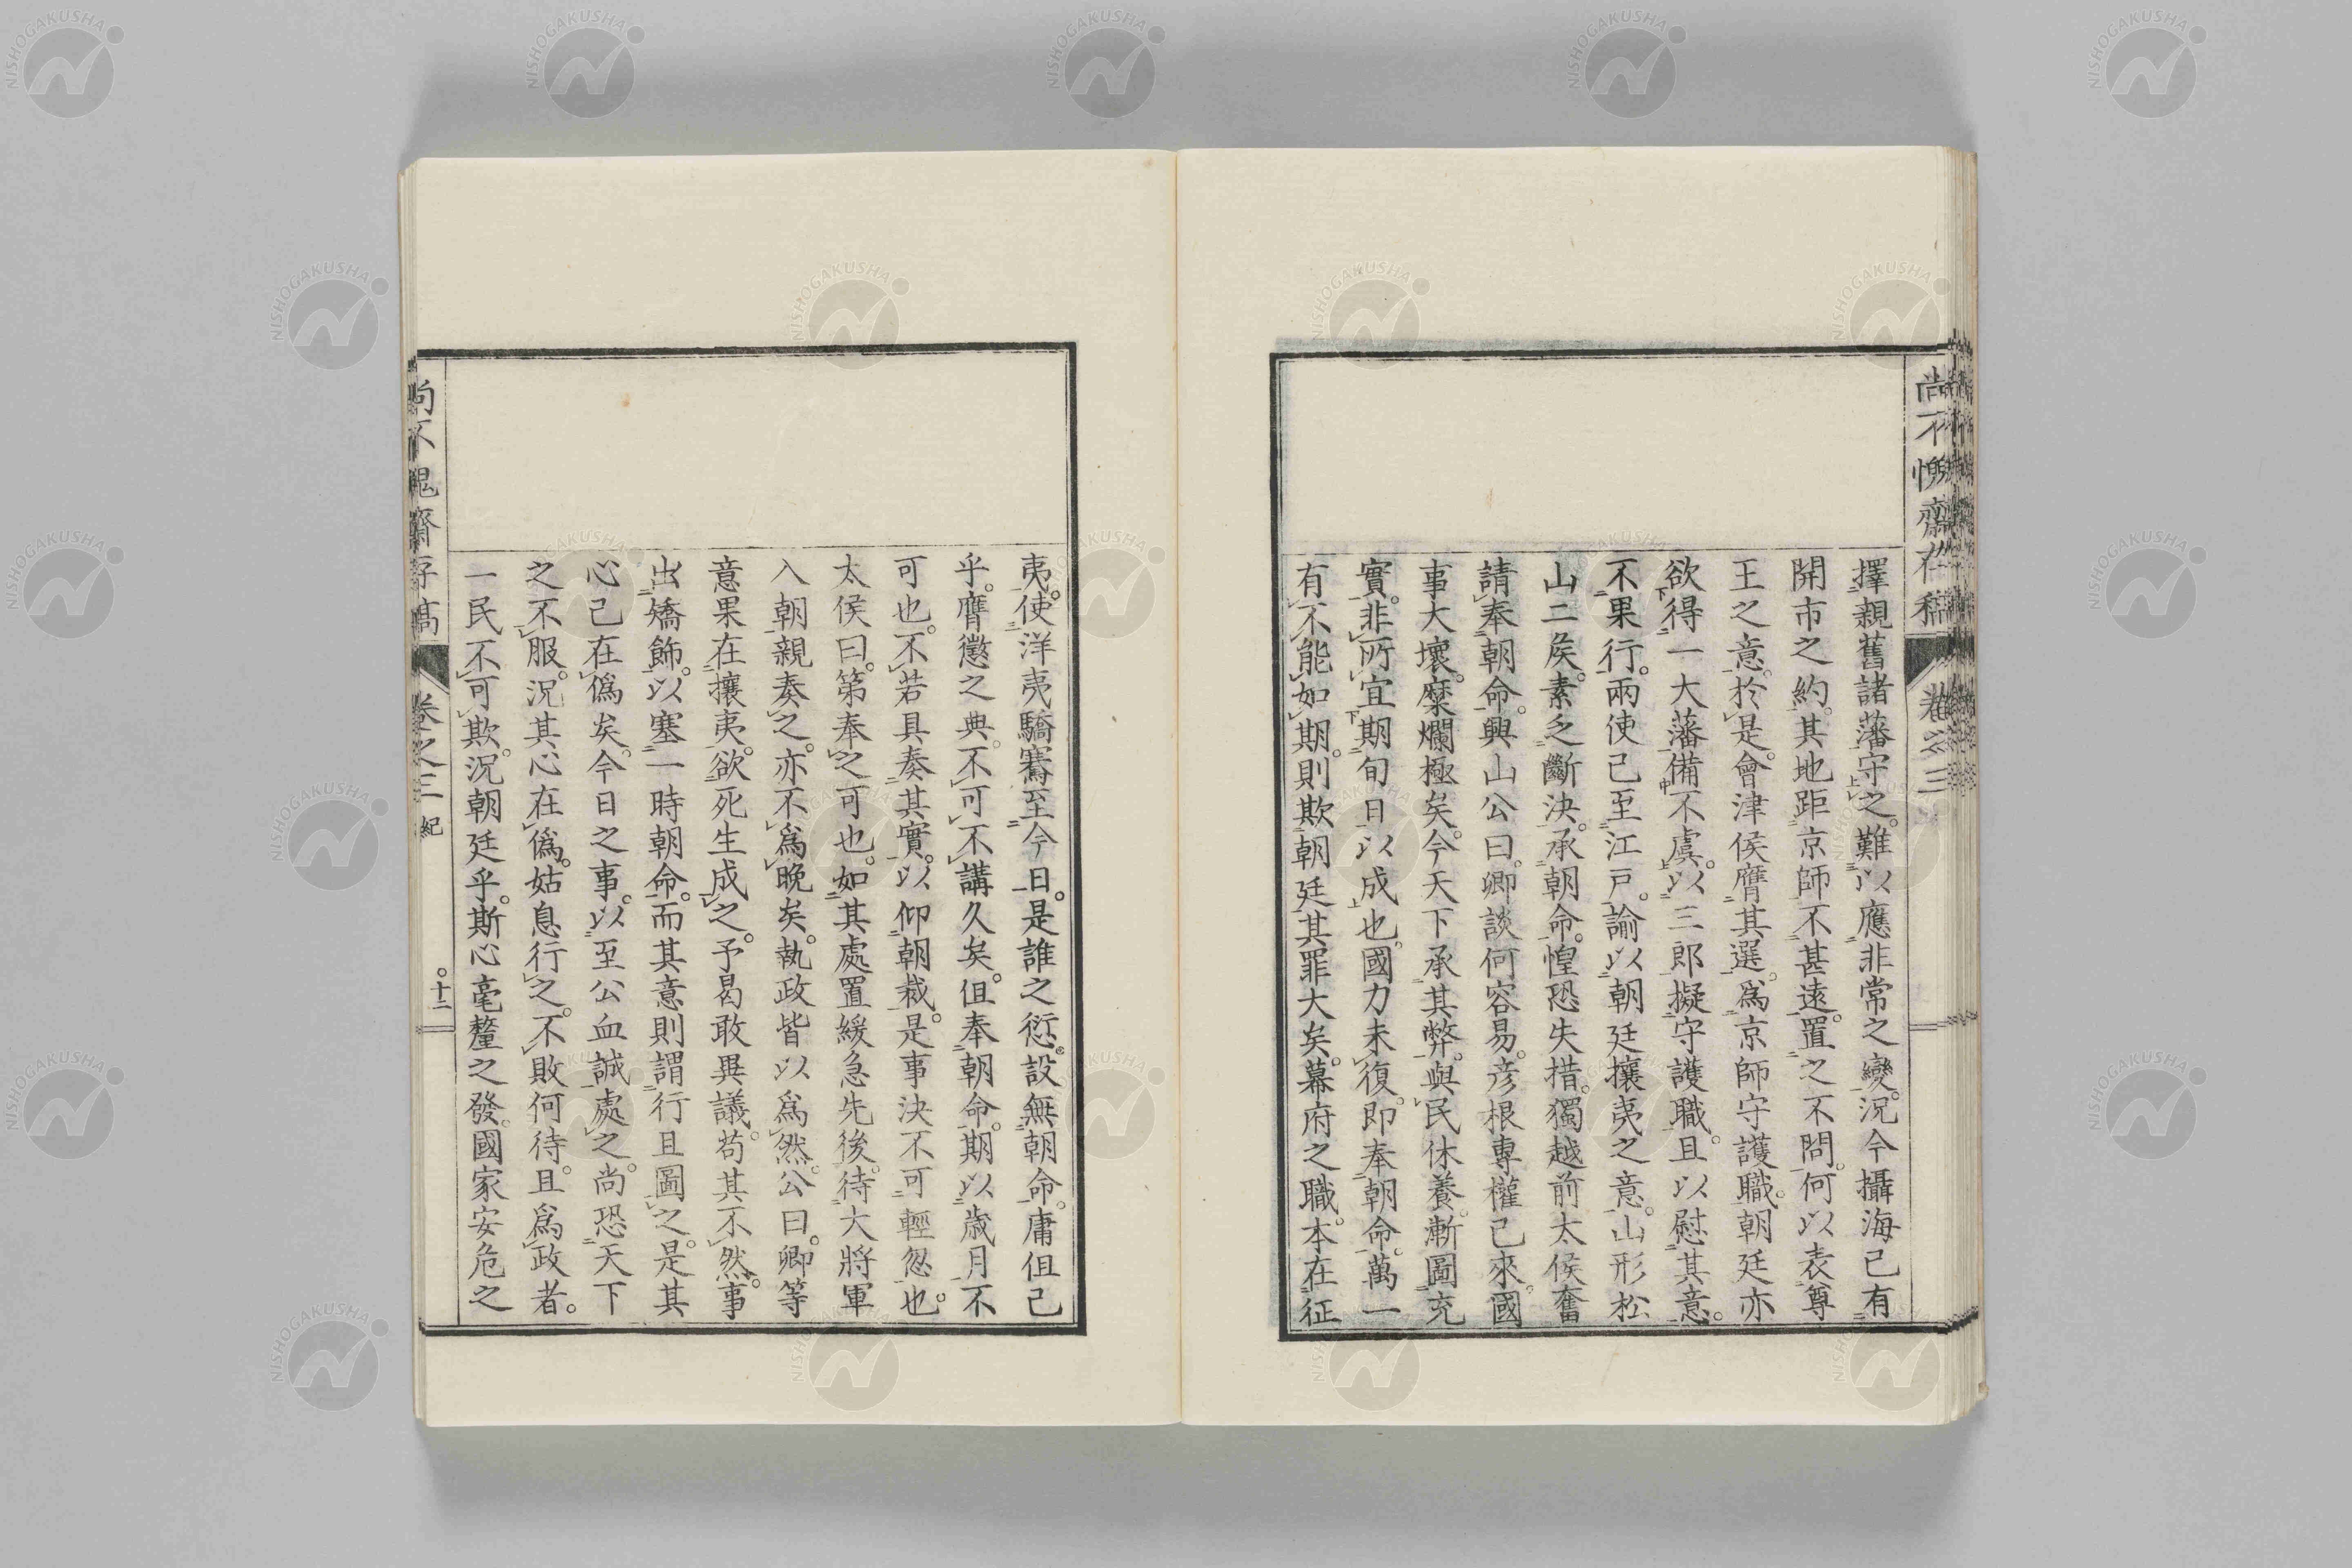 尚不愧齋存稿 卷之三
擇親舊諸藩守之。難以應非常之變。況今攝海已有
開市之約。其地距京師不甚遠。置之不問。何以表尊
王之意。於是。會津侯膺其選。爲京師守護職。朝廷亦
欲得一大藩備不虞。以三郎擬守護職。且以慰其意。
不果行。兩使已至江戸。諭以朝廷攘夷之意。山形松
山二矦。素乏斷決。承朝命。惶恐失措。獨越前太侯奮
請奉朝命。興山公曰。卿談何容易。彦根專權已來。國
事大壞。糜爛極矣。今天下承其弊。與民休養。漸圖充
實。非所宜期旬日以成也。國力未復。即奉朝命。萬一
有不能如期。則欺朝廷其罪大矣。幕府之職。本在征
夷。使洋夷驕騫至今日。是誰之愆。設無朝命。庸但已
乎。膺懲之典。不可不講久矣。但奉朝命。期以歳月不
可也。不若具奏其實。以仰朝裁。是事決不可輕忽也。
太侯曰。第奉之可也。如其處置緩急先後。待大將軍
入朝親奏之。亦不爲晩矣。執政皆以爲然。公曰。卿等
意果在攘夷。欲死生成之。予曷敢異議。苟其不然。事
出矯飾。以塞一時朝命。而其意則謂行且圖之。是其
心已在僞矣。今日之事。以至公血誠處之。尚恐天下
之不服。況其心在僞。姑息行之。不敗何待。且爲政者。
一民不可欺。況朝廷乎。斯心毫釐之發。國家安危之
尚不愧齋存稿 卷之三 紀 〇十二